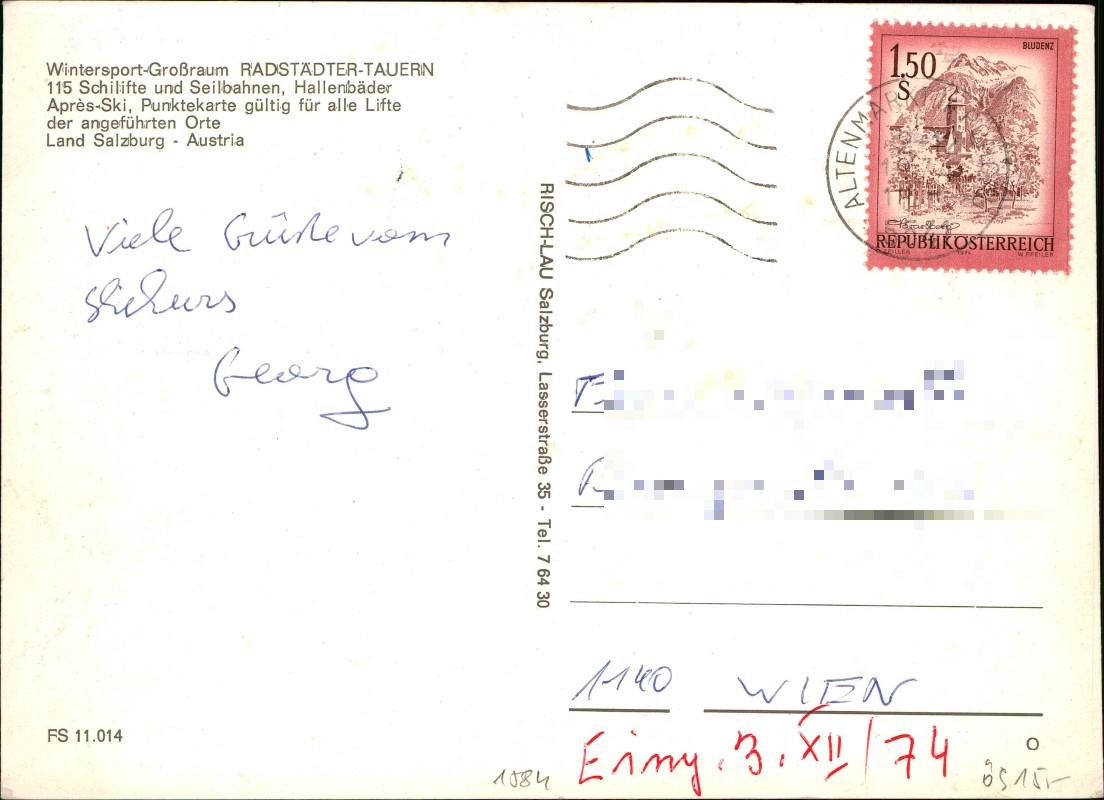 Wintersport-Großraum RADSTÄDTER-TAUERN
115 Schilifte und Seilbahnen, Hallenbäder
Après-Ski, Punktekarte gültig für alle Lifte
der angeführten Orte
Land Salzburg - Austria
Viele Grüße vom
Skikurs
Georg
FS 11.014
RISCH-LAU Salzburg, Lasserstraße 35 - Tel. 7 64 30
BLUDENZ
1.50
S
ALTENMAR
REPUBLIK ÖSTERREICH
W.PFEILER
1140 WIEN
Eing. 3. XII / 74
1584
öS 15,-